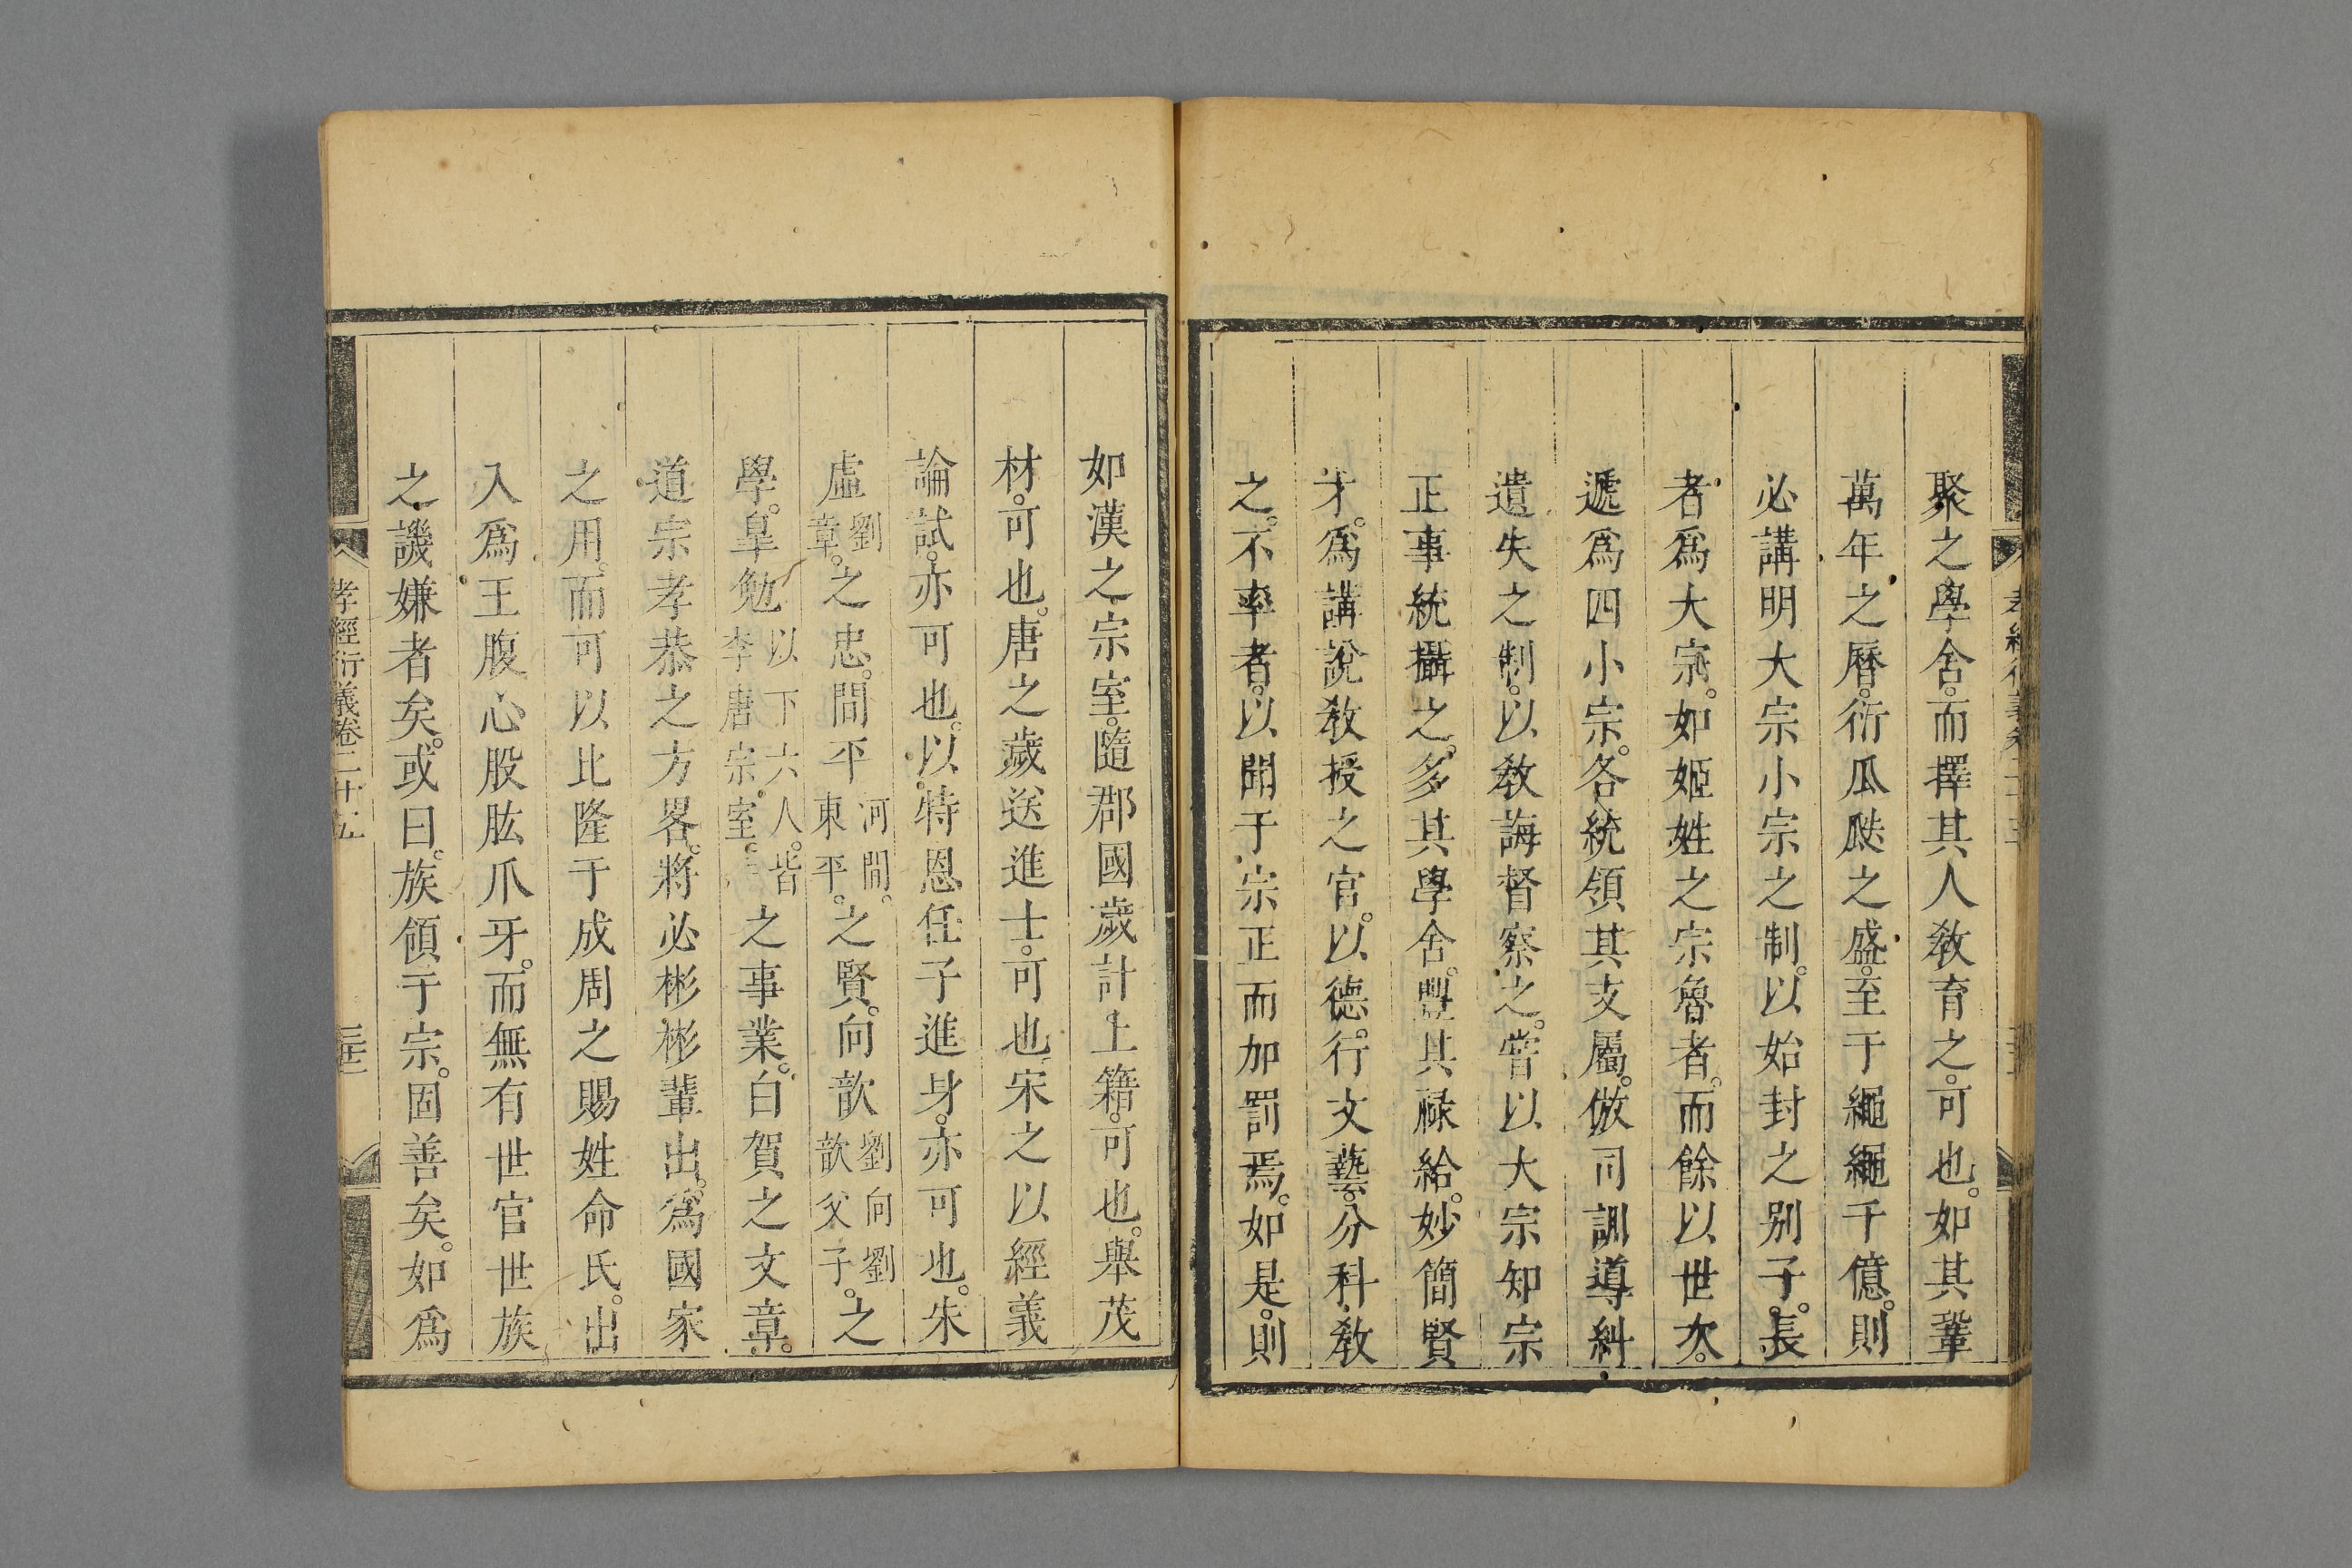 聚之學舍。而擇其人敎育之。可也。如其鞏
萬年之曆。衍瓜瓞之盛。至于繩繩千億。則
必講明大宗小宗之制。以始封之別子。長
者爲大宗。如姬姓之宗魯者。而餘以世次。
遞爲四小宗。各統領其支屬。倣司訓導糾
遺失之制。以敎誨督察之。嘗以大宗知宗
正事統攝之。多其學舍。豐其祿給。妙簡賢
才。爲講說敎授之官。以德。行文藝。分科敎
之。不率者。以聞于宗正而加罰焉。如是。則
如漢之宗室。隨郡國歲計上籍。可也。舉茂
材。可也。唐之歲送進士。可也。宋之以經義
論試。亦可也。以特恩任子進身。亦可也。朱
虛劉章。之忠。間平河間。東平。之賢。向歆劉向劉歆父子。之
學。皐勉以下六人。皆李唐宗室。之事業。白賀之文章。
道宗孝恭之方畧。將必彬彬輩出。爲國家
之用。而可以比隆于成周之賜姓命氏。出
入爲王腹心股肱爪牙。而無有世官世族
之譏嫌者矣。或曰。族領于宗。固善矣。如爲
孝經衍義卷二十五